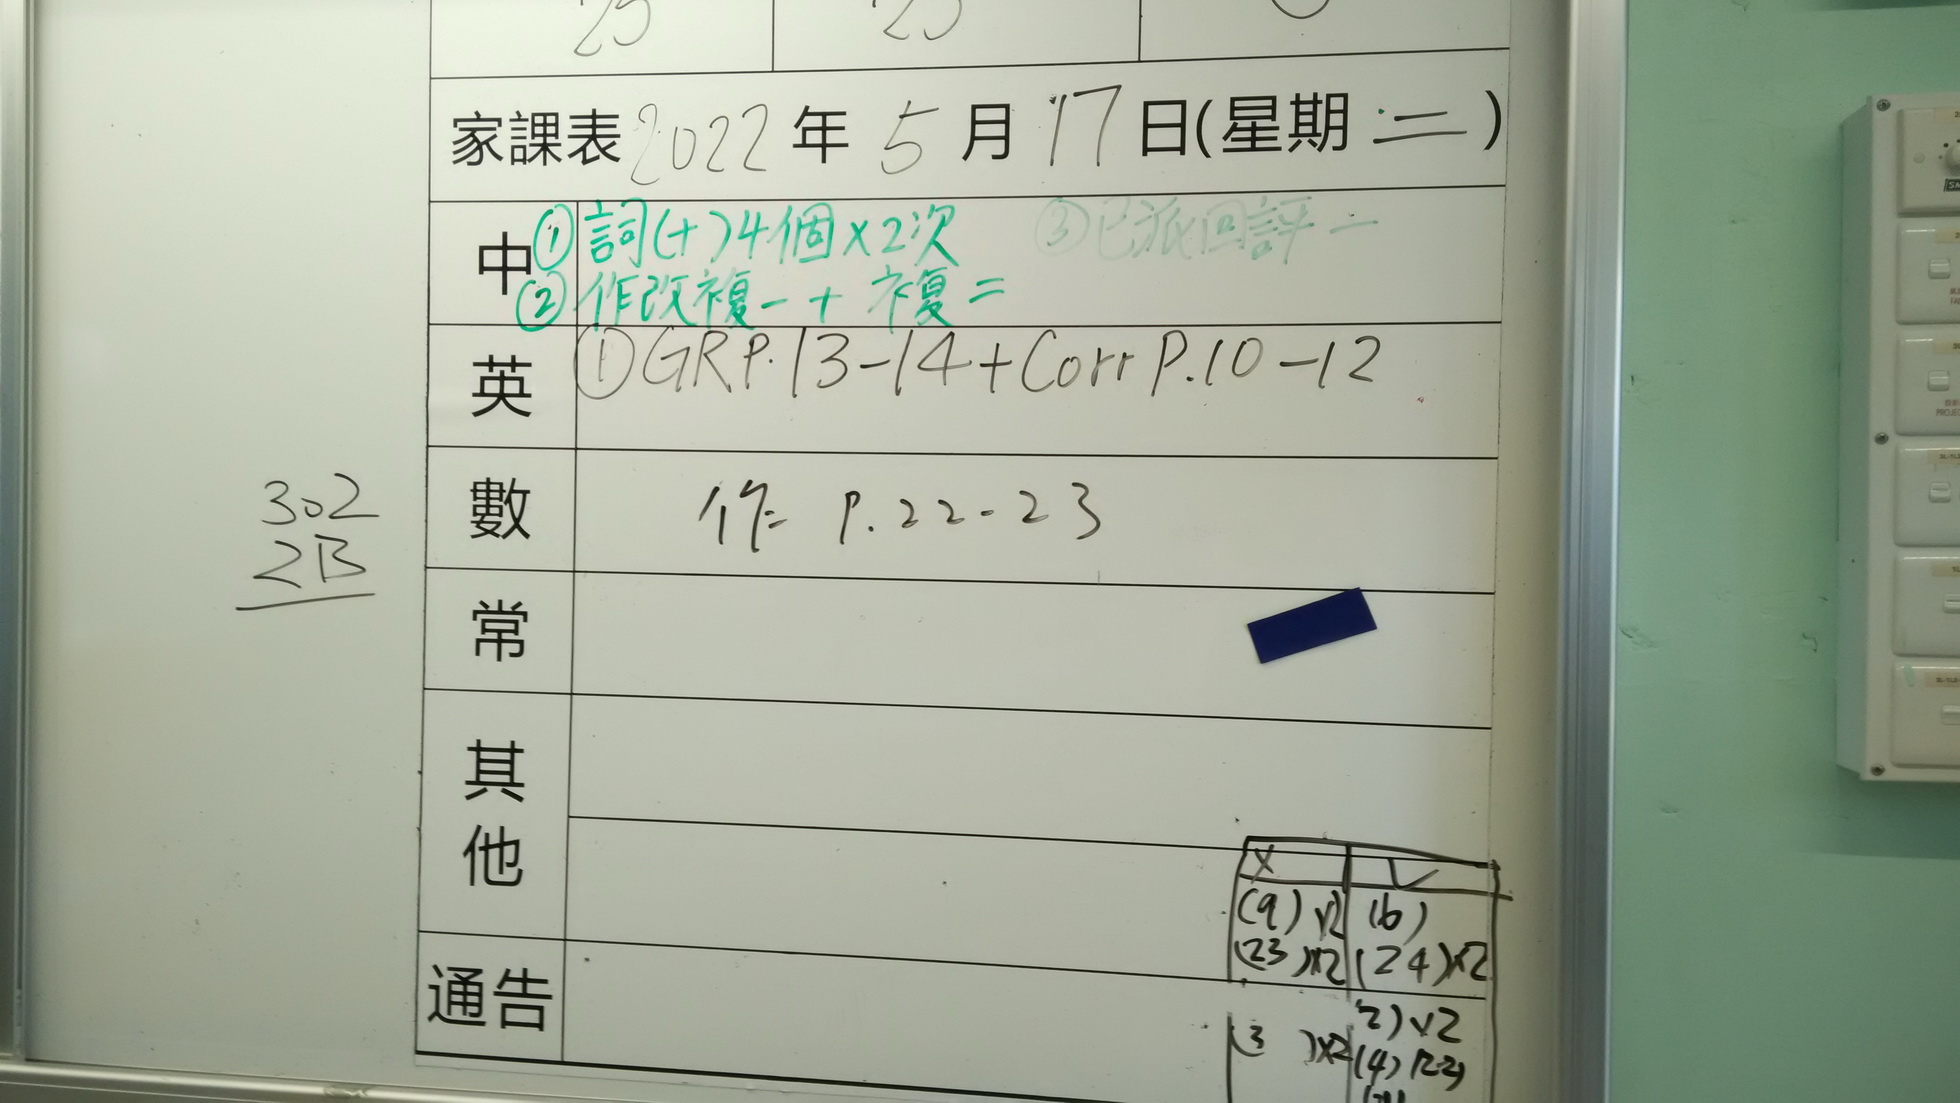 25 25
家課表 2022 年 5 月 17 日(星期 二)
中 ① 詞(十)4個×2次 ③已派回評一
② 作改複一+複二
英 ①GR P.13-14+Corr P.10-12
302
數 作 P.22-23
2B
常
其他
X ✓
(9)×2 (6)
(23)×2 (24)×2
通告
(3 )×2 2)×2
(4)